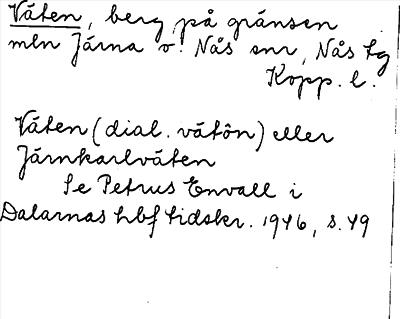 Våten, berg på gränsen
mln Järna o. Nås snr, Nås tg
Kopp. l.
Våten (dial. våtôn) eller
Järnkarlvåten
Se Petrus Envall i
Dalarnas hbf tidskr. 1946, s. 49